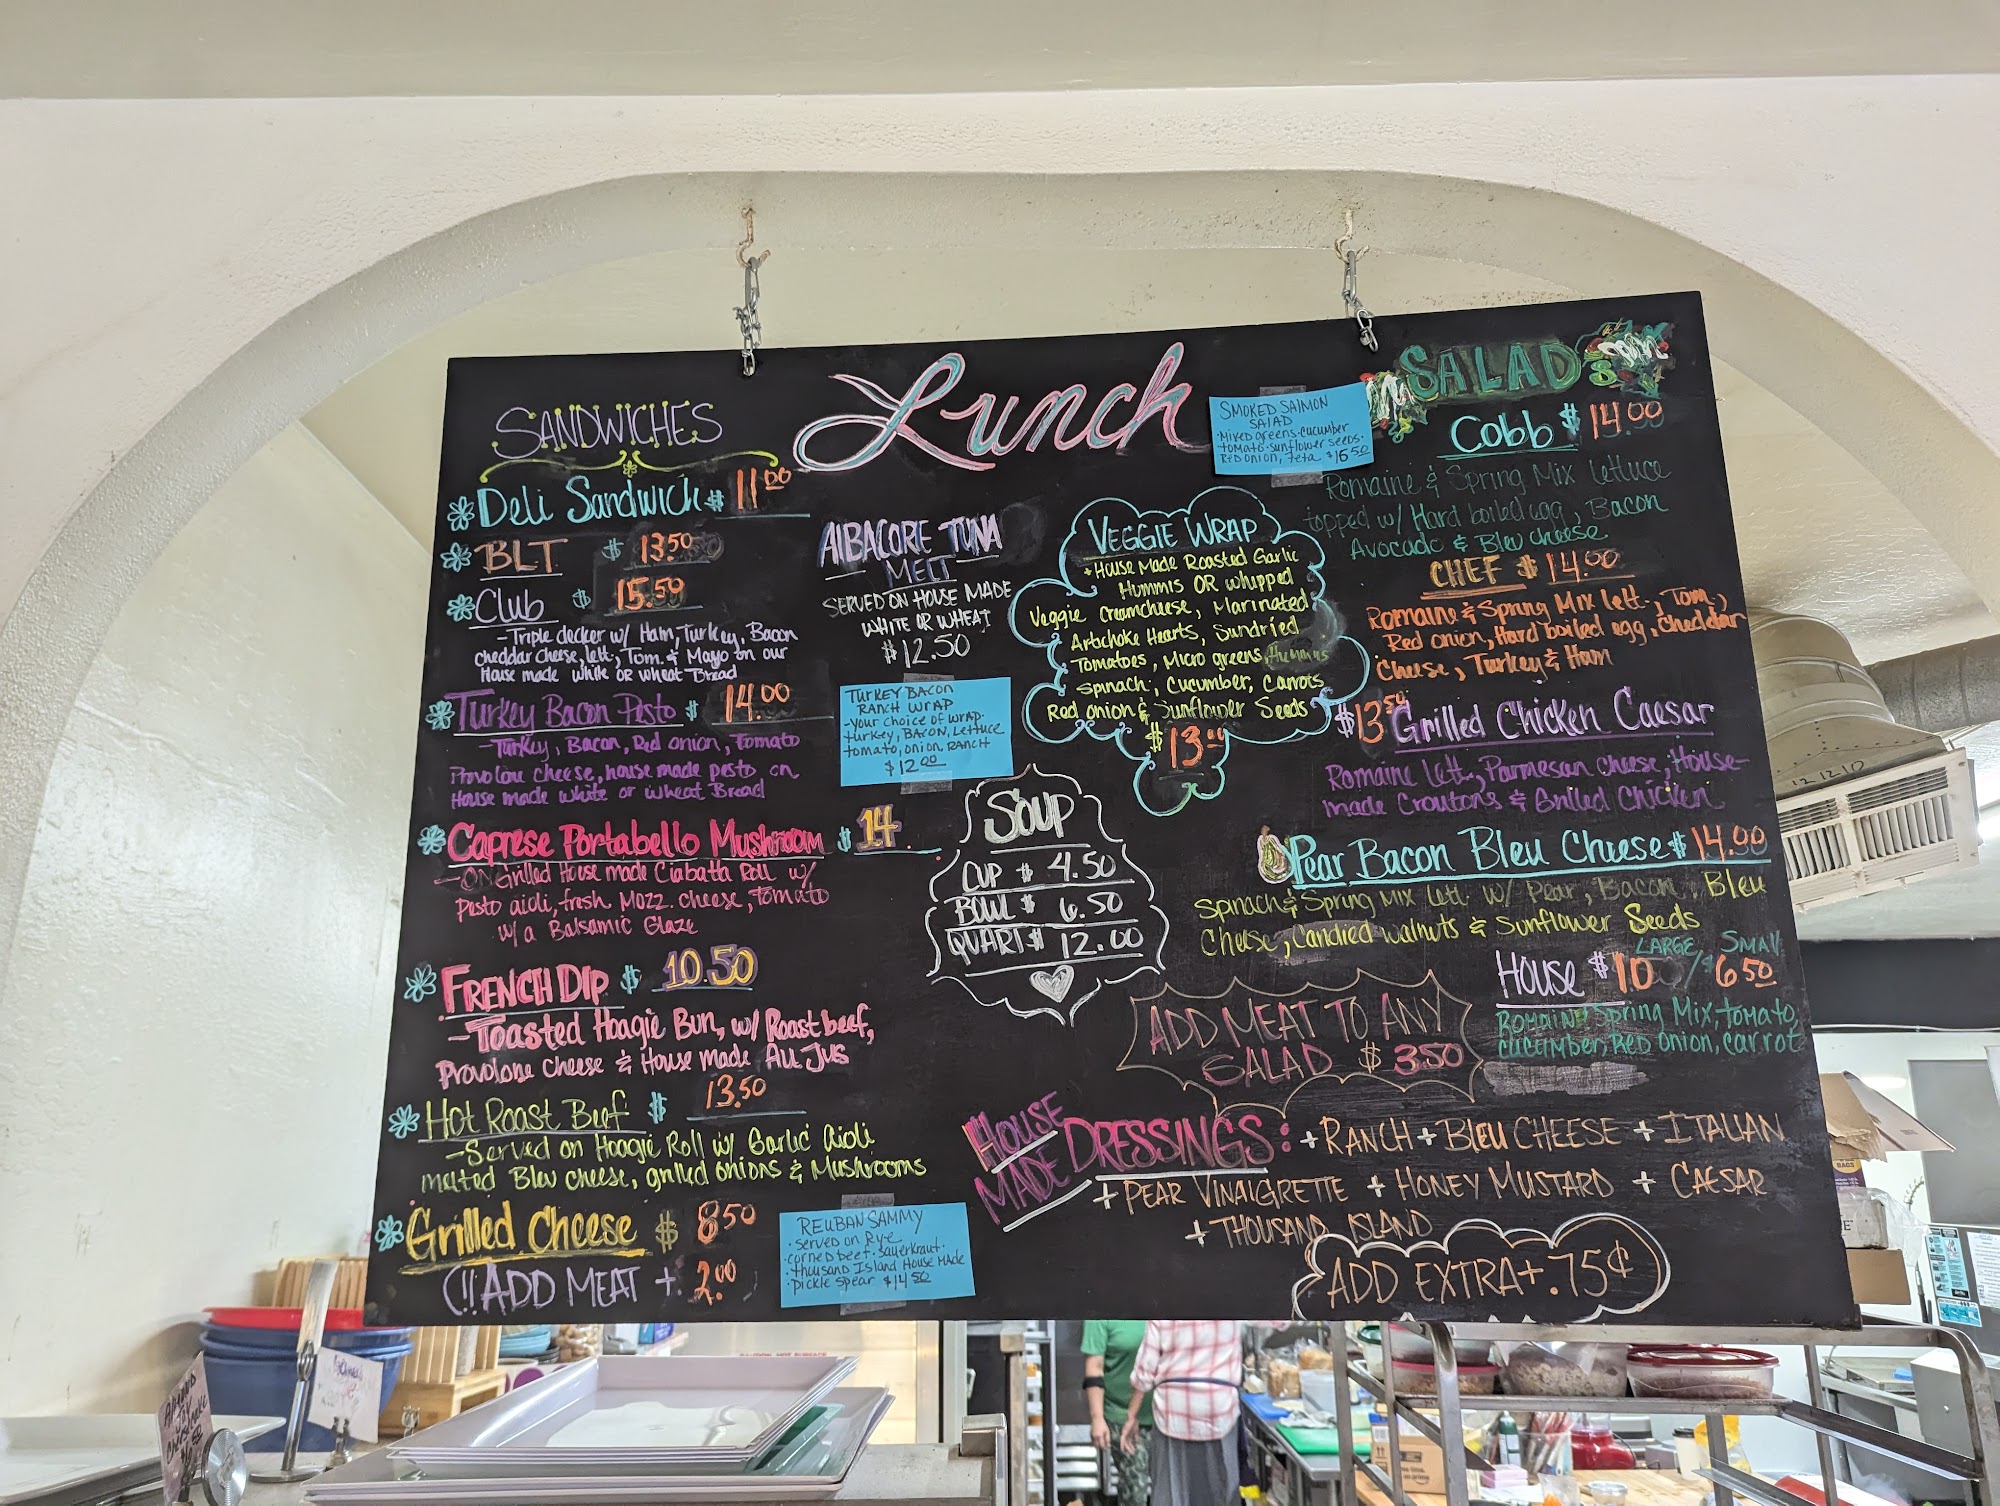 Lunch
SANDWICHES
Deli Sandwich $ 11.00
BLT $ 13.50
Club $ 15.50
-Triple decker w/ Ham, Turkey, Bacon
cheddar cheese, lett, Tom. & Mayo on our
House made white or wheat Bread
Turkey Bacon Pesto $ 14.00
-Turkey, Bacon, Red onion, Tomato
Provolone cheese, house made pesto on
House made white or wheat Bread
Caprese Portabello Mushroom $ 14
-On Grilled House made Ciabatta Roll w/
pesto aioli, fresh Mozz. cheese, Tomato
w/ a Balsamic Glaze
FRENCH DIP $ 10.50
-Toasted Hoagie Bun, w/ Roast beef,
Provolone Cheese & House made AU JUS
Hot Roast Beef $ 13.50
-Served on Hoagie Roll w/ Garlic aioli
melted Bleu cheese, grilled onions & Mushrooms
Grilled Cheese $ 8.50
(!! ADD MEAT + 2.00
AlBACORE TUNA
MELT
SERVED ON HOUSE MADE
WHITE OR WHEAT
$12.50
TURKEY BACON
RANCH WRAP
-your choice of wrap.
turkey, BACON, Lettuce
tomato, onion, RANCH
$12.00
VEGGIE WRAP
+House Made Roasted Garlic
Hummis OR whipped
Veggie Creamcheese, Marinated
Artichoke Hearts, Sundried
Tomatoes, Micro greens, Hummus
Spinach, Cucumber, Carrots
Red onion & Sunflower Seeds
$13.00
SOUP
CUP $ 4.50
BOWL $ 6.50
QUART $ 12.00
REUBAN SAMMY
·served on Rye
·corned beef·sauerkraut·
·thousand Island House Made
·pickle spear $14.50
SMOKED SALMON
SALAD
·Mixed greens·cucumber
tomato·sunflower seeds·
Red onion, feta $16.50
SALADS
Cobb $ 14.00
Romaine & Spring Mix lettuce
topped w/ Hard boiled egg, Bacon
Avocado & Bleu cheese
CHEF $ 14.00
Romaine & Spring Mix lett., Tom.,
Red onion, Hard boiled egg, cheddar
Cheese, Turkey & Ham
$13.50 Grilled Chicken Caesar
Romaine lett, Parmesan cheese, House-
made Croutons & Grilled Chicken
Pear Bacon Bleu Cheese $ 14.00
Spinach & Spring Mix lett w/ Pear, Bacon, Bleu
Cheese, Candied walnuts & Sunflower Seeds
LARGE / SMALL
HOUSE $10 / $6.50
ROMAIN Spring Mix, tomato,
cucumber, RED onion, carrot
ADD MEAT TO ANY
SALAD $ 3.50
HOUSE MADE DRESSINGS: + RANCH + Bleu CHEESE + ITALIAN
+ PEAR VINAIGRETTE + HONEY MUSTARD + CAESAR
+ THOUSAND ISLAND
ADD EXTRA + .75¢